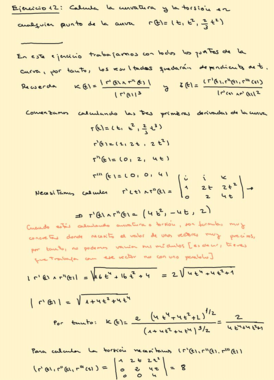 Ejercicio 12: Calcula la curvatura y la torsión en
cualquier punto de la curva r(t) = (t, t², 2/3 t³)
En este ejercicio trabajaremos con todos los puntos de la
curva, por tanto, los resultados quedarán dependientes de t.
Recuerda K(t) = |r'(t) ∧ r''(t)| / |r'(t)|³ y τ(t) = (r'(t), r''(t), r'''(t)) / |r'(t) ∧ r''(t)|²
Comenzamos calculando las tres primeras derivadas de la curva
r(t) = (t, t², 2/3 t³)
r'(t) = (1, 2t, 2t²)
r''(t) = (0, 2, 4t)
r'''(t) = (0, 0, 4)
Necesitamos calcular r'(t) ∧ r''(t) = | i j k | 1 2t 2t² | 0 2 4t | →
⇒ r'(t) ∧ r''(t) = (4t², -4t, 2)
Cuando estés calculando curvatura o torsión, son fórmulas muy
por tanto, no podemos
que trabajar con ese vector no con uno paralelo)
|r'(t) ∧ r''(t)| = √16t⁴ + 16t² + 4 = 2√4t⁴ + 4t² + 1
|r'(t)| = √1 + 4t² + 4t⁴
Por tanto: K(t) = 2 (4t⁴ + 4t² + 1)^1/2 / (1 + 4t² + 4t⁴)^3/2 = 2 / 4t⁴ + 4t² + 1
Para calcular la torsión necesitamos (r'(t), r''(t), r'''(t))
(r'(t), r''(t), r'''(t)) = | 1 2t 2t² | 0 2 4t | 0 0 4 | = 8